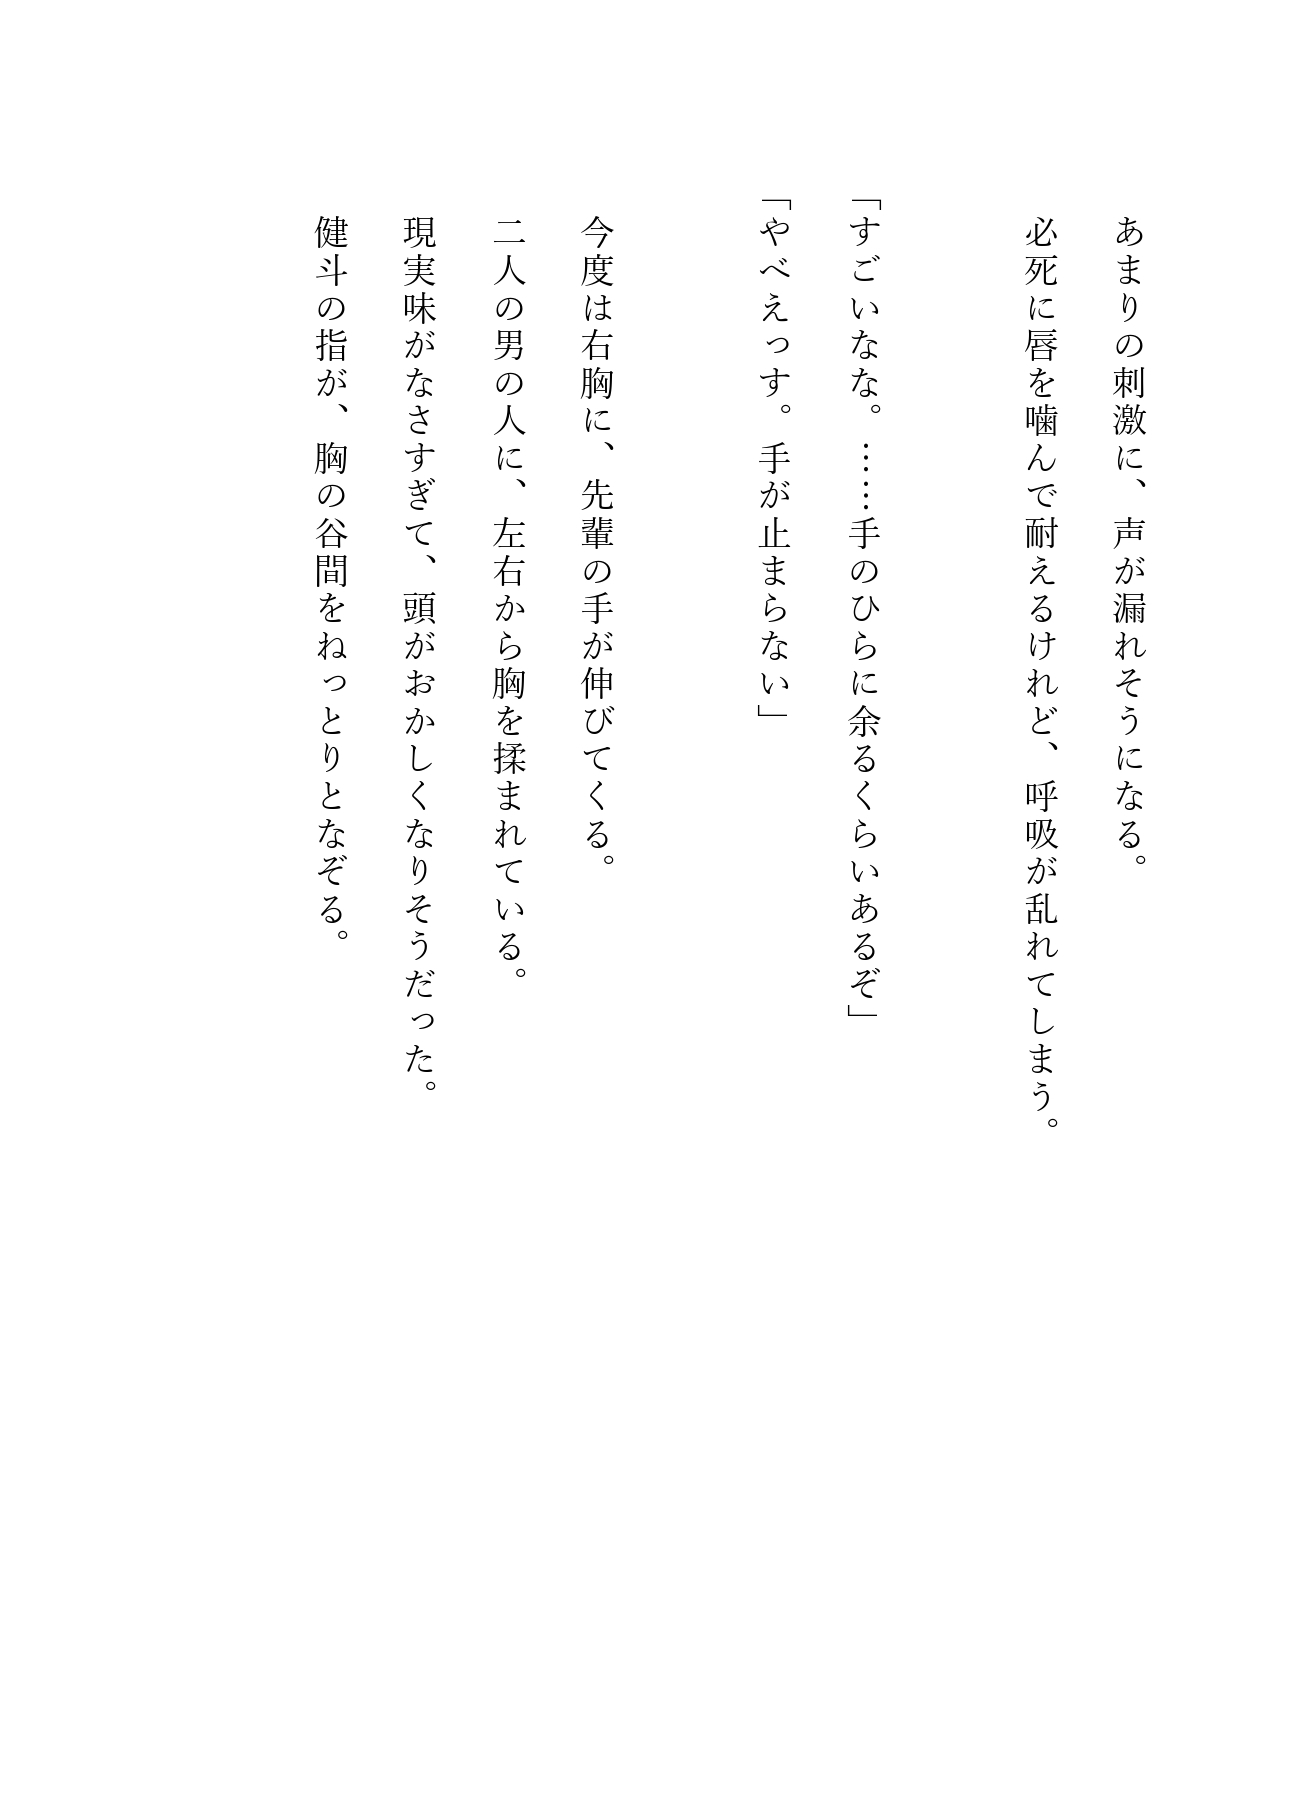 あまりの刺激に、声が漏れそうになる。
必死に唇を噛んで耐えるけれど、呼吸が乱れてしまう。
「すごいなな。……手のひらに余るくらいあるぞ」
「やべえっす。手が止まらない」
今度は右胸に、先輩の手が伸びてくる。
二人の男の人に、左右から胸を揉まれている。
現実味がなさすぎて、頭がおかしくなりそうだった。
健斗の指が、胸の谷間をねっとりとなぞる。